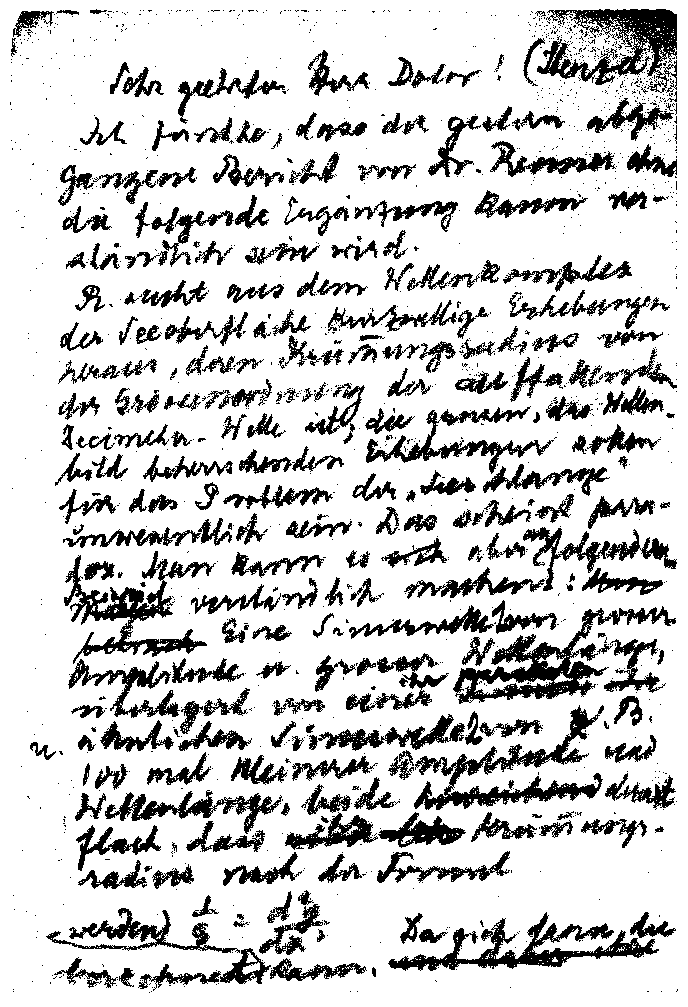 Sehr geehrter Herr Doktor! (Stenzel)
Ich fürchte, dass der gestern abge-
gangene Bericht von Dr. Remmer ohne
die folgende Ergänzung kaum ver-
ständlich sein wird.
R. sucht aus dem Wellenkomplex
der Seeoberfläche kurzwellige Erhebungen
heraus, deren Krümmungsradius von
der Grössenordnung der auffallenden
Dezimeter-Welle ist; die grossen, das Wellen-
bild beherrschenden Erhebungen sollen
für das Problem der „Seeschlange“
unwesentlich sein. Das scheint para-
dox. Man kann es aber am folgenden
Beispiel verständlich machen:
Eine Sinuswelle von grosser
Amplitude u. grosser Wellenlänge,
überlagert von einer ihr parallelen
u. ähnlichen Sinuswelle von z.B.
100 mal kleinerer Amplitude und
Wellenlänge, beide derart
flach, dass Krümmungs-
radius nach der Formel
1/ϱ = d²y/dx² berechnet werden kann. Da sich dann die